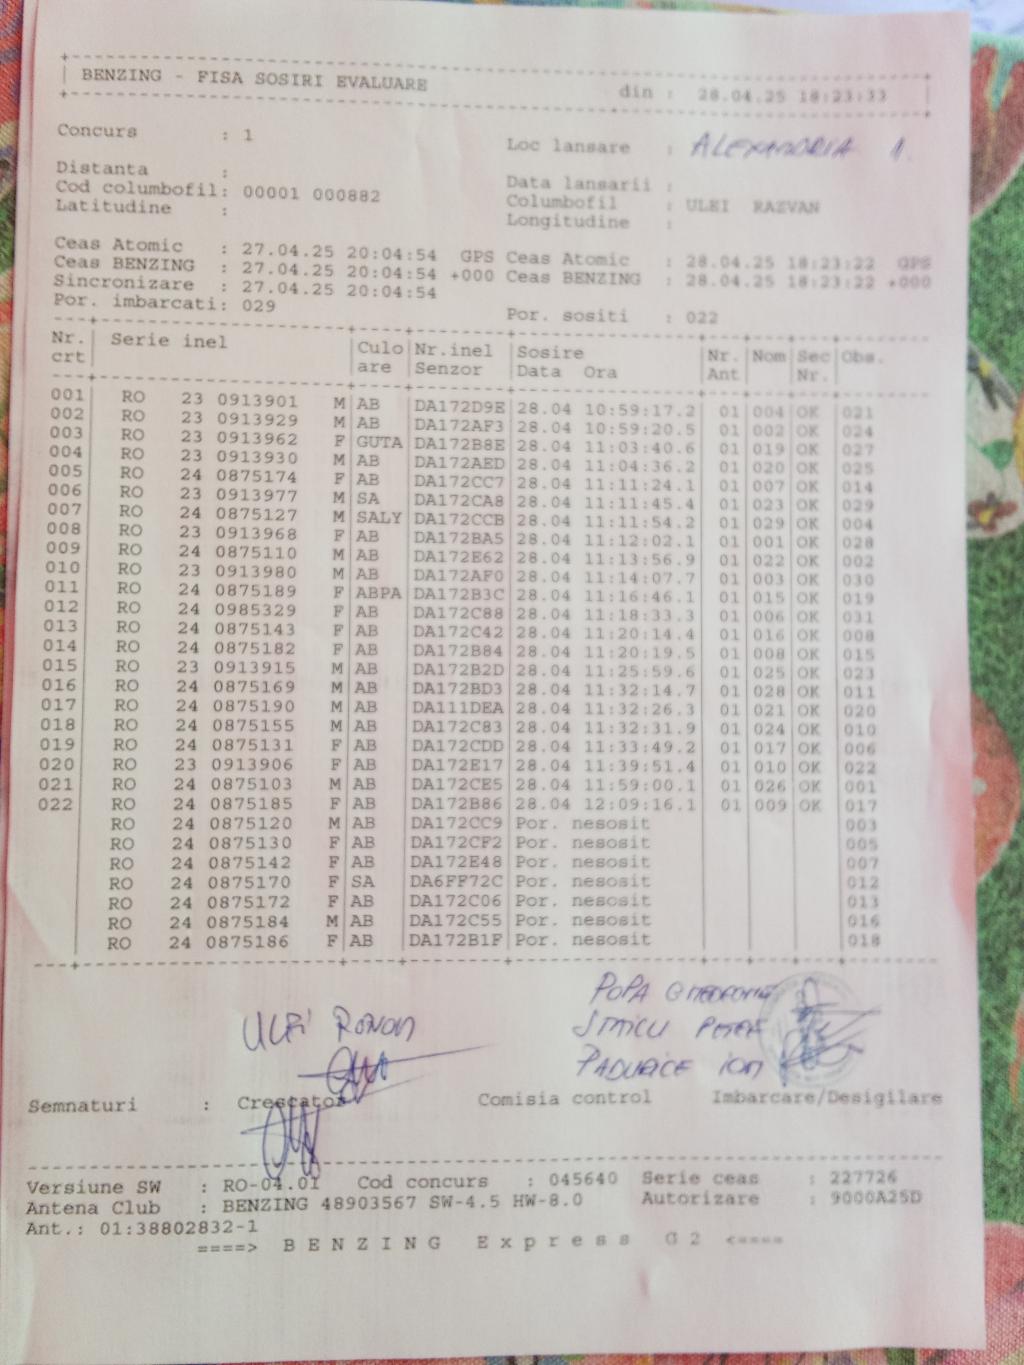 BENZING - FISA SOSIRI EVALUARE din : 28.04.25 18:23:33
Concurs : 1 Loc lansare : ALEXANDRIA 1.
Distanta : Data lansarii :
Cod columbofil: 00001 000882 Columbofil : ULEI RAZVAN
Latitudine : Longitudine :
Ceas Atomic : 27.04.25 20:04:54 GPS Ceas Atomic : 28.04.25 18:23:22 GPS
Ceas BENZING : 27.04.25 20:04:54 +000 Ceas BENZING : 28.04.25 18:23:22 +000
Sincronizare : 27.04.25 20:04:54
Por. imbarcati: 029 Por. sositi : 022
Nr. Serie inel Culo Nr.inel Sosire Nr. Nom Sec Obs.
crt are Senzor Data Ora Ant Nr.
001 RO 23 0913901 M AB DA172D9E 28.04 10:59:17.2 01 004 OK 021
002 RO 23 0913929 M AB DA172AF3 28.04 10:59:20.5 01 002 OK 024
003 RO 23 0913962 F GUTA DA172B8E 28.04 11:03:40.6 01 019 OK 027
004 RO 23 0913930 M AB DA172AED 28.04 11:04:36.2 01 020 OK 025
005 RO 24 0875174 F AB DA172CC7 28.04 11:11:24.1 01 007 OK 014
006 RO 23 0913977 M SA DA172CA8 28.04 11:11:45.4 01 023 OK 029
007 RO 24 0875127 M SALY DA172CCB 28.04 11:11:54.2 01 029 OK 004
008 RO 23 0913968 F AB DA172BA5 28.04 11:12:02.1 01 001 OK 028
009 RO 24 0875110 M AB DA172E62 28.04 11:13:56.9 01 022 OK 002
010 RO 23 0913980 M AB DA172AF0 28.04 11:14:07.7 01 003 OK 030
011 RO 24 0875189 F ABPA DA172B3C 28.04 11:16:46.1 01 015 OK 019
012 RO 24 0985329 F AB DA172C88 28.04 11:18:33.3 01 006 OK 031
013 RO 24 0875143 F AB DA172C42 28.04 11:20:14.4 01 016 OK 008
014 RO 24 0875182 F AB DA172B84 28.04 11:20:19.5 01 008 OK 015
015 RO 23 0913915 M AB DA172B2D 28.04 11:25:59.6 01 025 OK 023
016 RO 24 0875169 M AB DA172BD3 28.04 11:32:14.7 01 028 OK 011
017 RO 24 0875190 M AB DA111DEA 28.04 11:32:26.3 01 021 OK 020
018 RO 24 0875155 M AB DA172C83 28.04 11:32:31.9 01 024 OK 010
019 RO 24 0875131 F AB DA172CDD 28.04 11:33:49.2 01 017 OK 006
020 RO 23 0913906 F AB DA172E17 28.04 11:39:51.4 01 010 OK 022
021 RO 24 0875103 M AB DA172CE5 28.04 11:59:00.1 01 026 OK 001
022 RO 24 0875185 F AB DA172B86 28.04 12:09:16.1 01 009 OK 017
RO 24 0875120 M AB DA172CC9 Por. nesosit 003
RO 24 0875130 F AB DA172CF2 Por. nesosit 005
RO 24 0875142 F AB DA172E48 Por. nesosit 007
RO 24 0875170 F SA DA6FF72C Por. nesosit 012
RO 24 0875172 F AB DA172C06 Por. nesosit 013
RO 24 0875184 M AB DA172C55 Por. nesosit 016
RO 24 0875186 F AB DA172B1F Por. nesosit 018
POPA
ULEI STAICU PETRE
PADURICE ION
Semnaturi : Crescator Comisia control Imbarcare/Desigilare
Versiune SW : RO-04.01 Cod concurs : 045640 Serie ceas : 227726
Antena Club : BENZING 48903567 SW-4.5 HW-8.0 Autorizare : 9000A25D
Ant.: 01:38802832-1
====> B E N Z I N G E x p r e s s G 2 <====